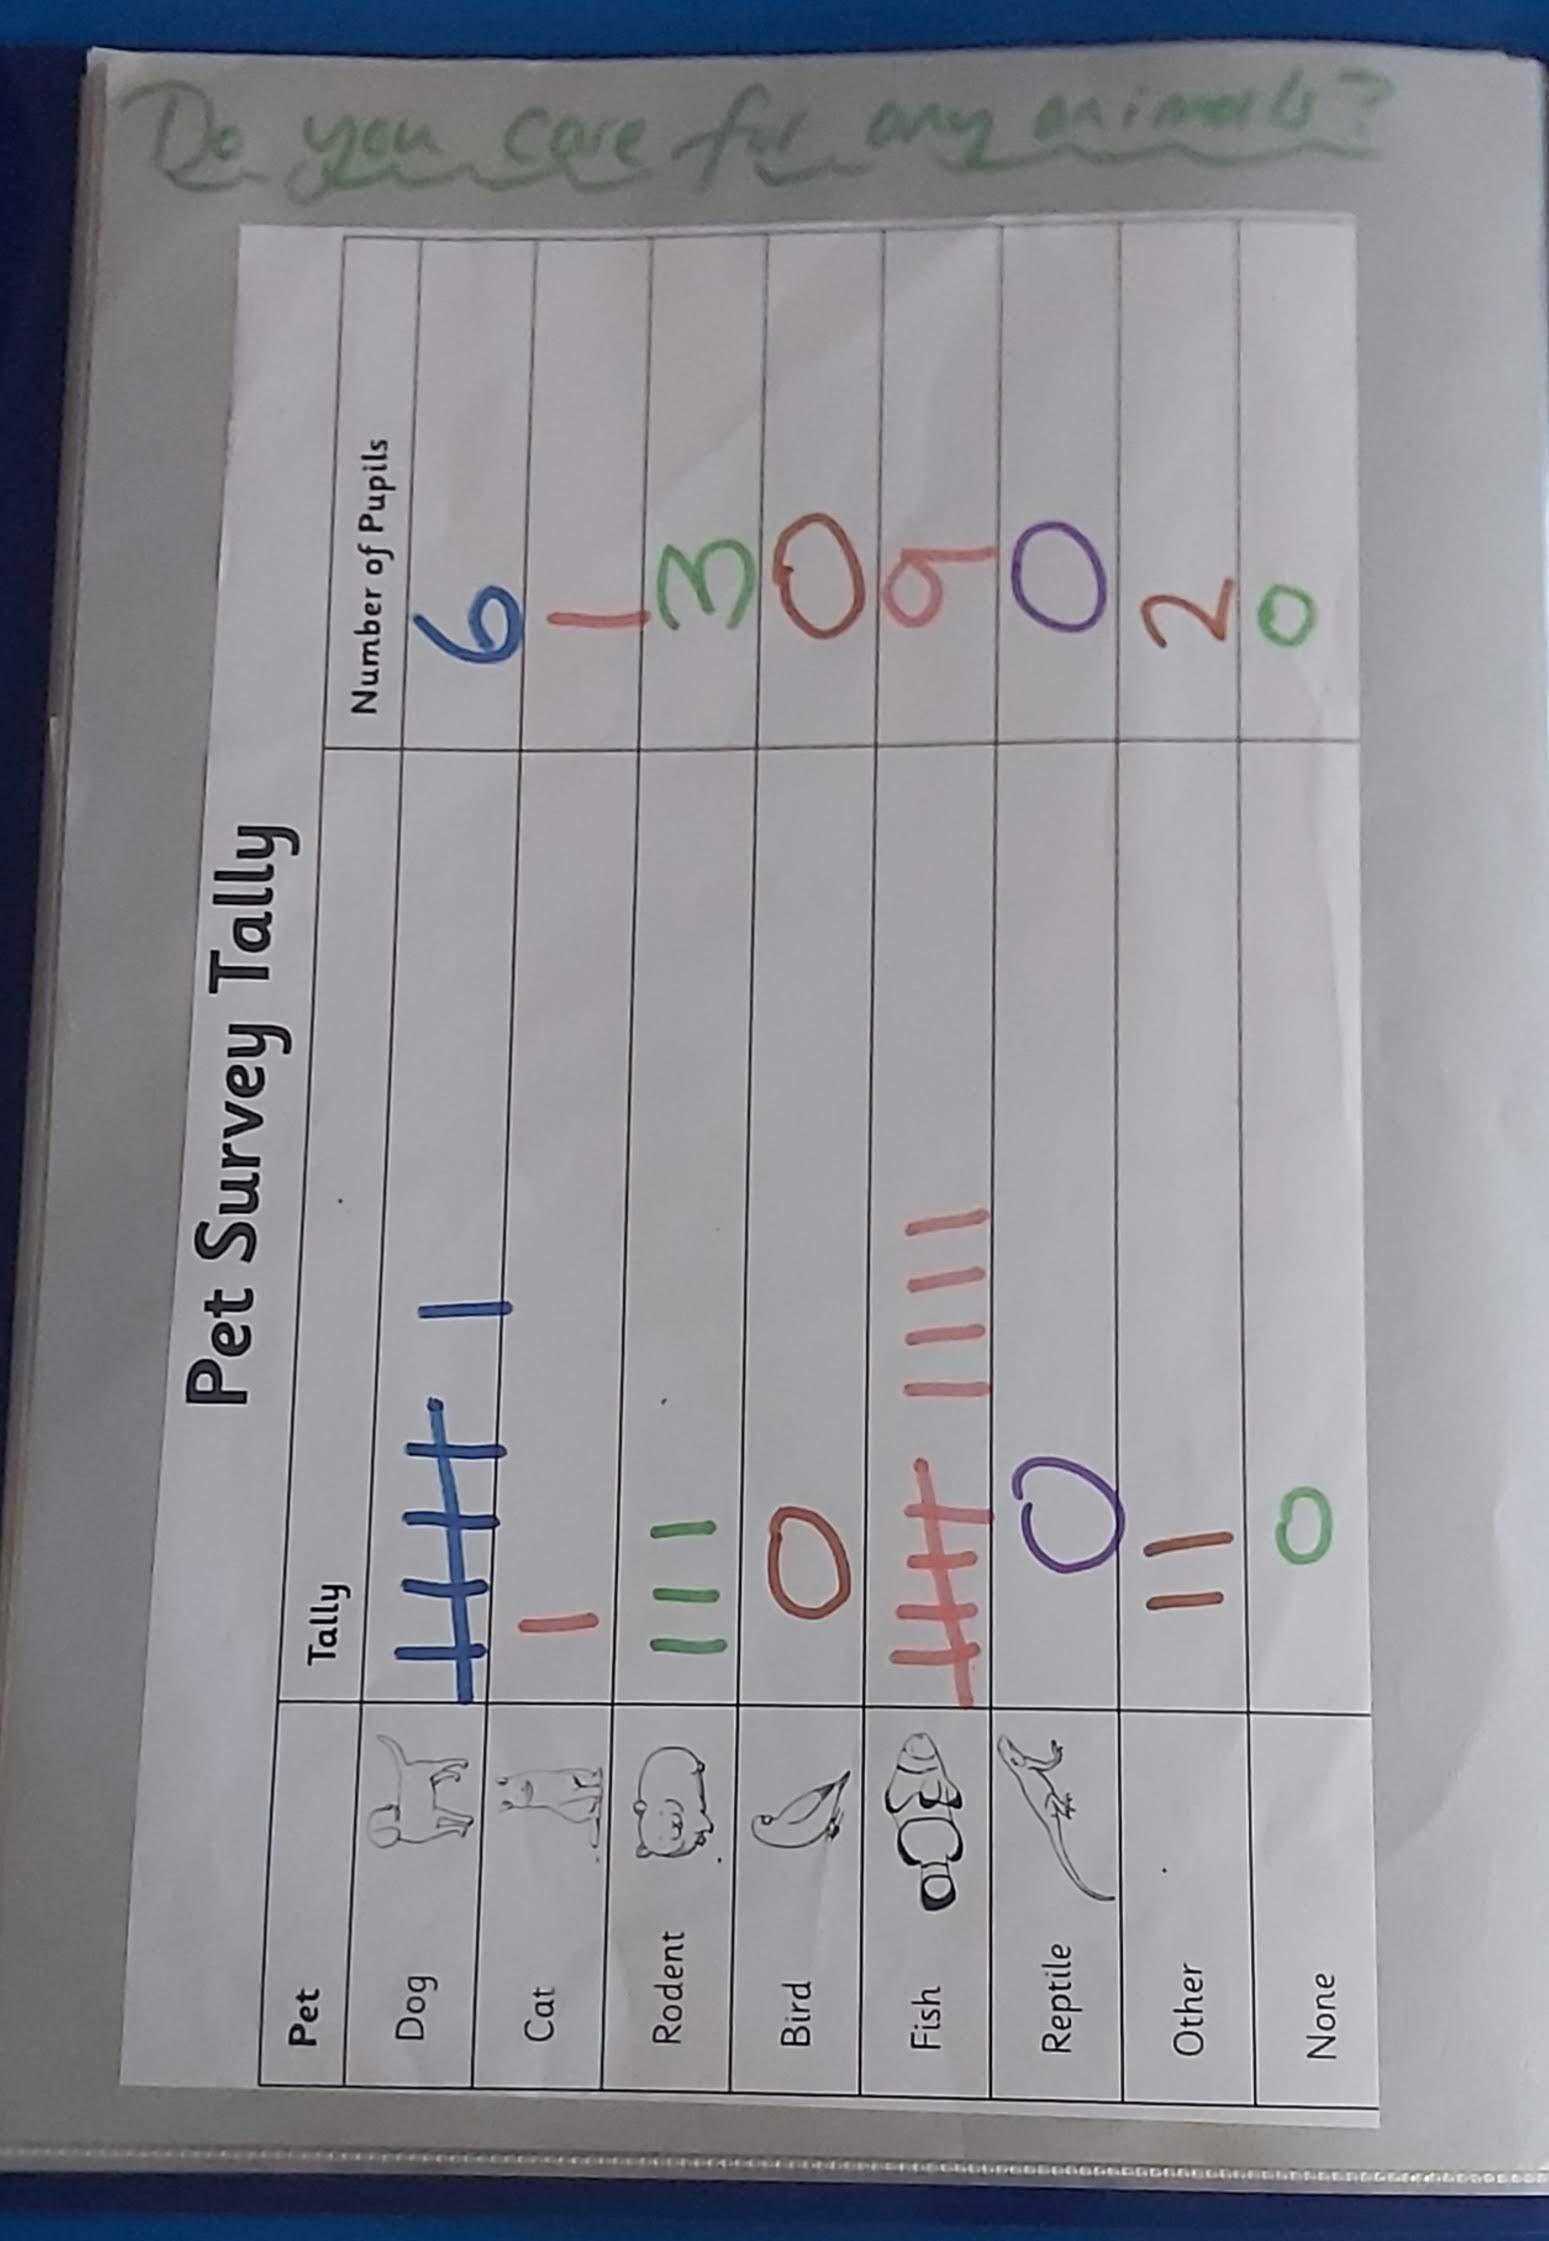 Do you care for any animals?
Pet Survey Tally
Pet Tally Number of Pupils
Dog 6
Cat 1
Rodent 3
Bird 0 0
Fish 9
Reptile 0 0
Other 2
None 0 0